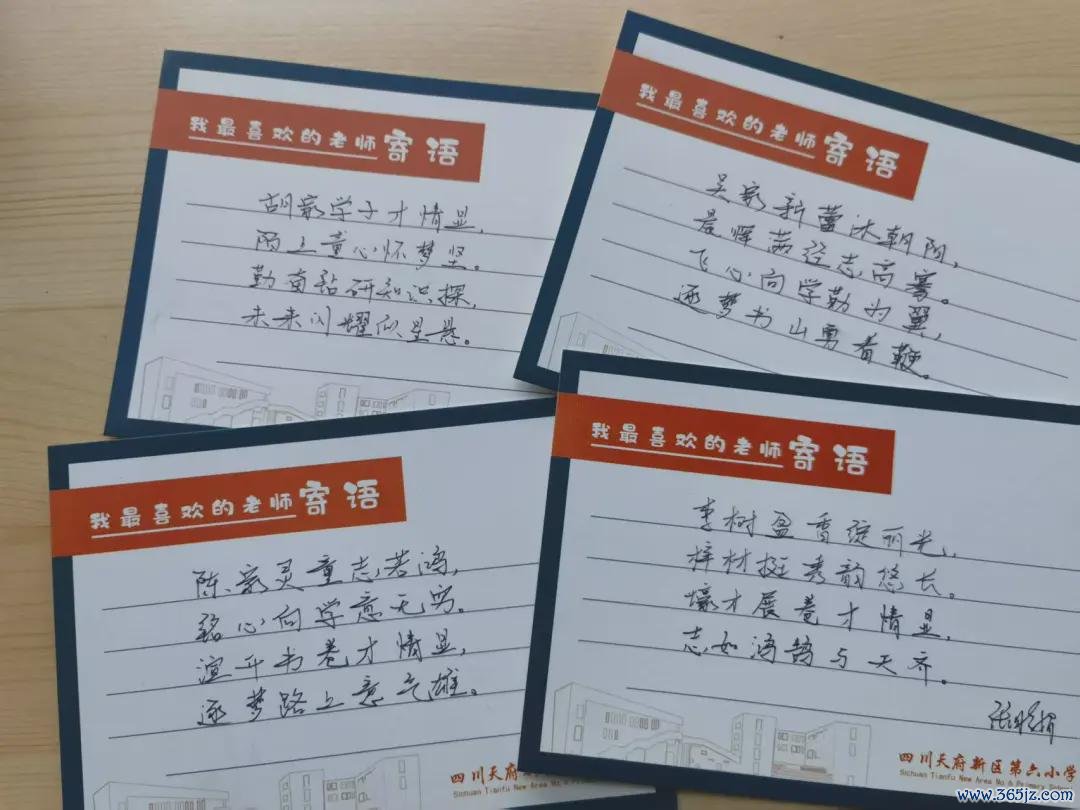 我最喜欢的老师寄语
胡家学子才情显，
雨上童心怀梦坚。
勤奋钻研知识探，
未来闪耀似星悬。
我最喜欢的老师寄语
吴家新蕾沐朝阳，
晨晖满径志高骞。
飞心向学勤为翼，
逐梦书山勇着鞭。
我最喜欢的老师寄语
陈家灵童志若鸿，
铭心向学意无穷。
渲开书卷才情显，
逐梦路上意气雄。
我最喜欢的老师寄语
李树盈香绽丽光，
梓材挺秀韵悠长。
壕才展卷才情显，
志如鸿鹄与天齐。
四川天府新区第六小学
Sichuan Tianfu New Area No.6 Primary School
四川天府
Sichuan Tianfu
www.365jz.com